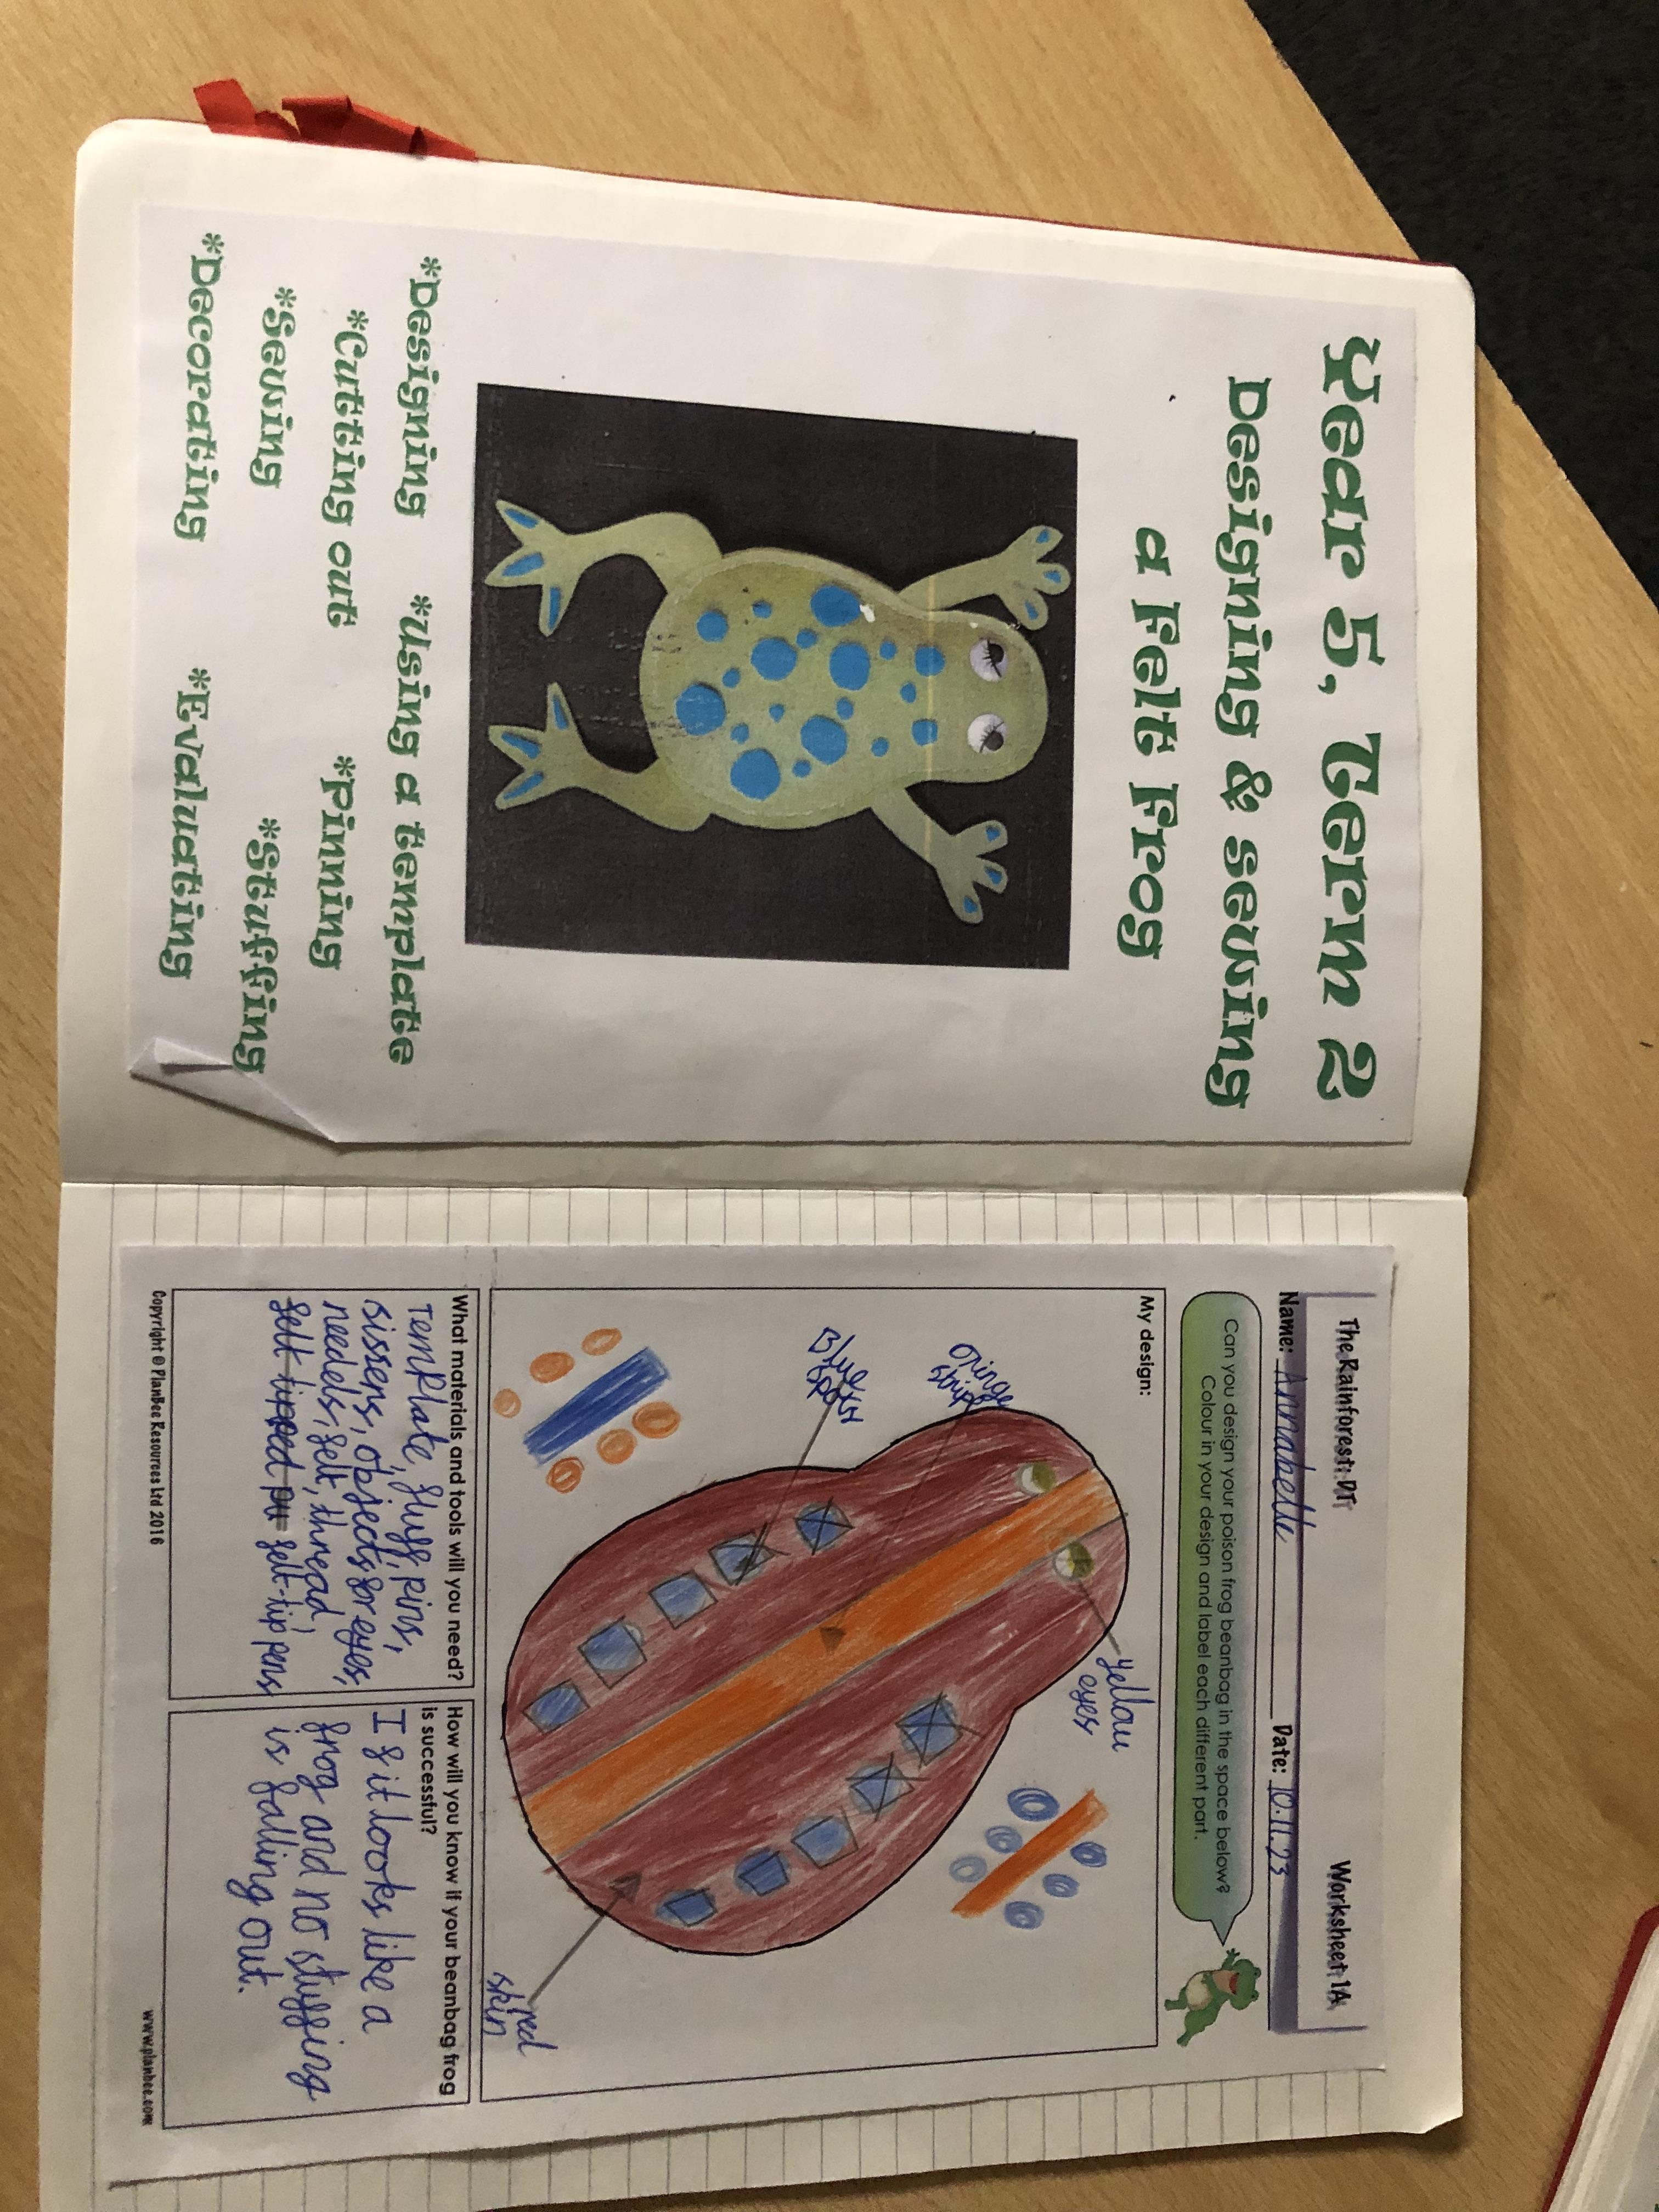 Year 5, Term 2
Designing & sewing
a Felt Frog
*Designing
*Using a template
*Cutting out
*Pinning
*Sewing
*Stuffing
*Decorating
*Evaluating
The Rainforest: DT
Worksheet 1A
Name: Annabelle
Date: 10.11.23
Can you design your poison frog beanbag in the space below?
Colour in your design and label each different part.
My design:
Oringe
strip
Blue
spots
yellow
eyes
red
skin
What materials and tools will you need?
Template, fluff, pins,
sissers, objects for eyes,
needels, felt, thread,
felt tipped pu felt-tip pens
How will you know if your beanbag frog
is successful?
If it looks like a
frog and no stuffing
is falling out.
Copyright © PlanBee Resources Ltd 2016
www.planbee.com